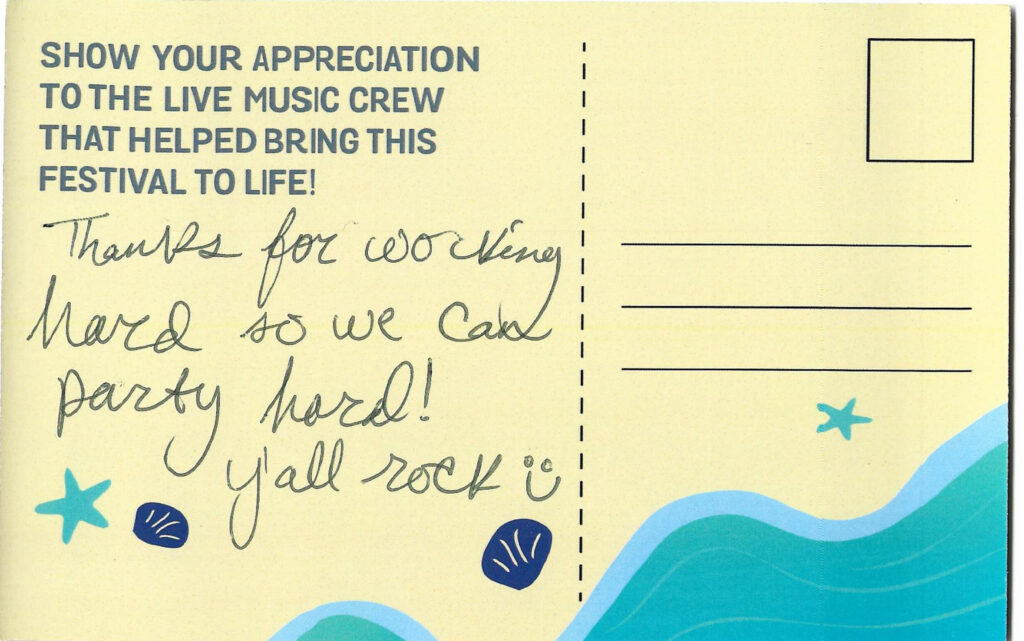 SHOW YOUR APPRECIATION
TO THE LIVE MUSIC CREW
THAT HELPED BRING THIS
FESTIVAL TO LIFE!
Thanks for working
hard so we can
party hard!
y'all rock